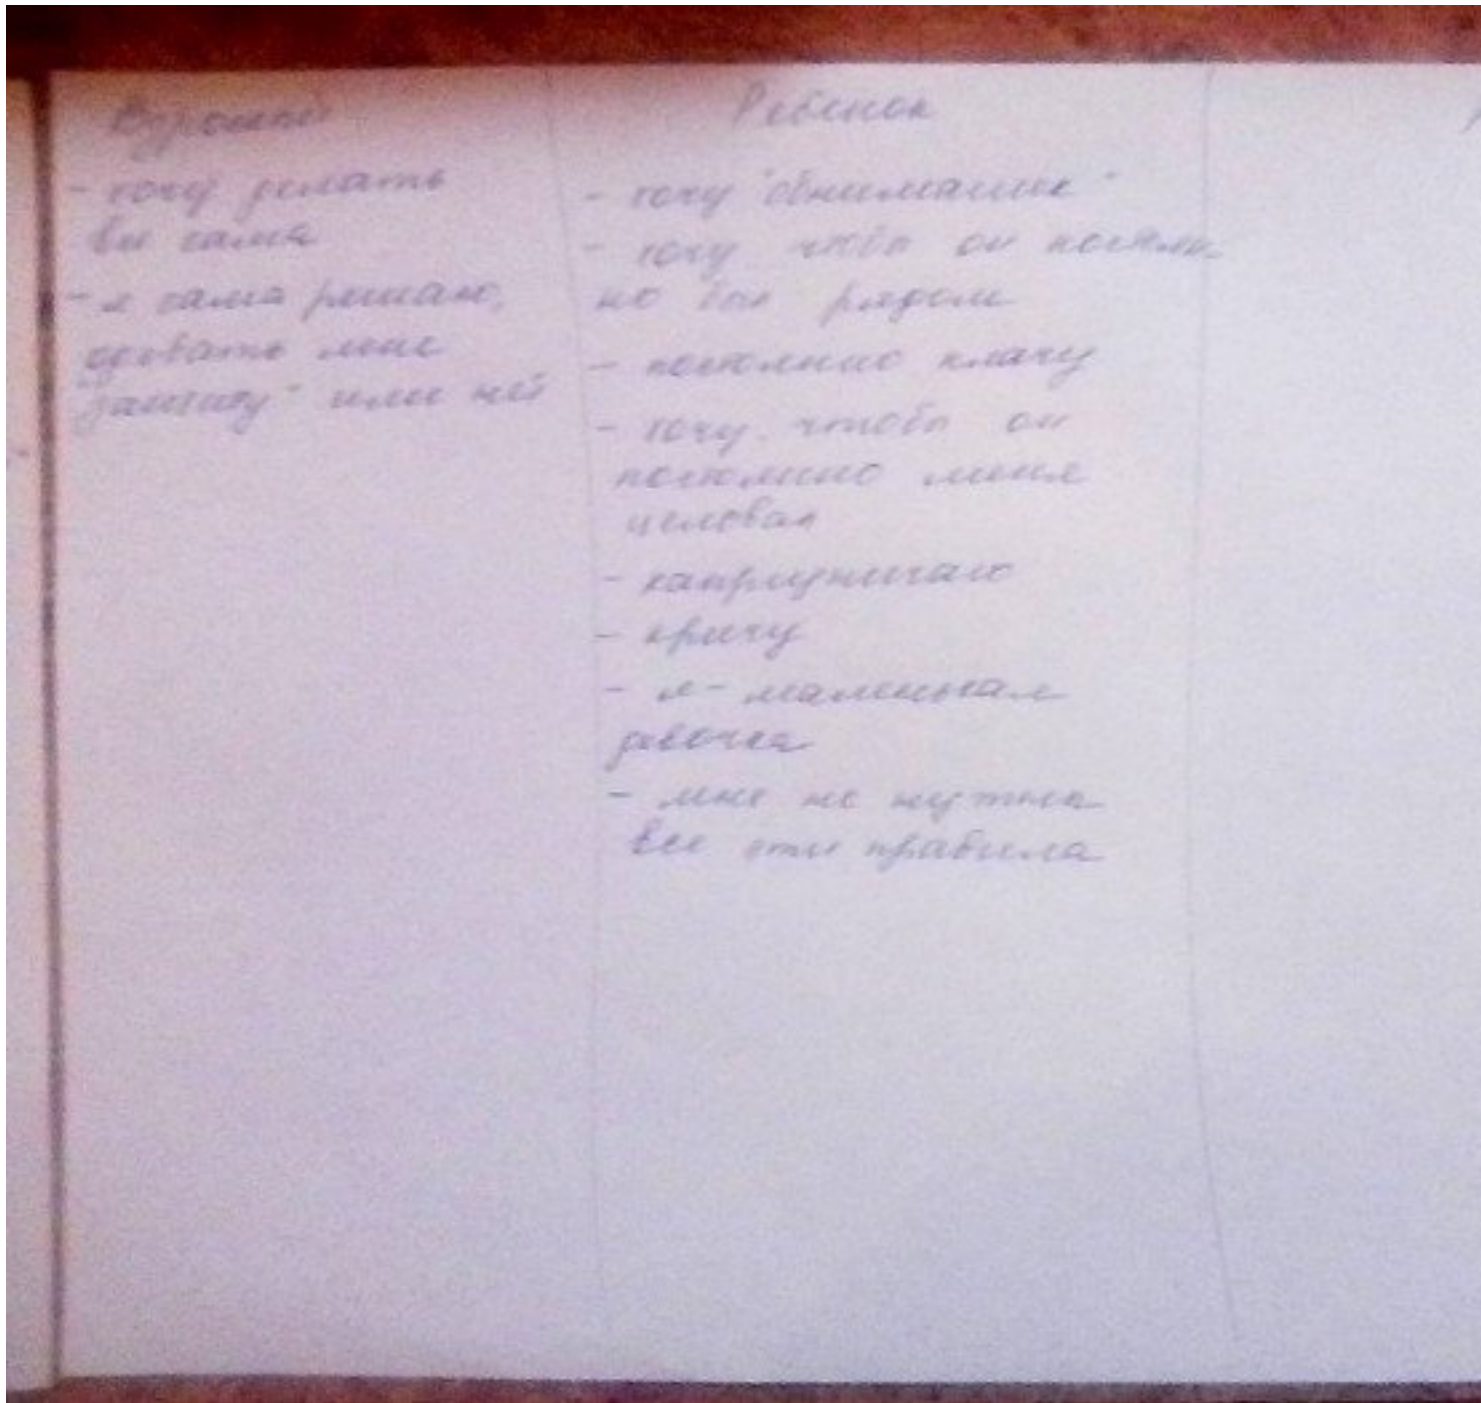 Взрослый
- хочу делать
все сама
- я сама решаю,
одевать мне
"защиту" или нет
Ребенок
- хочу "обнимашек"
- хочу чтобы он постоян-
но был рядом
- постоянно плачу
- хочу, чтобы он
постоянно меня
целовал
- капризничаю
- кричу
- я - маленькая
девочка
- мне не нужны
все эти правила